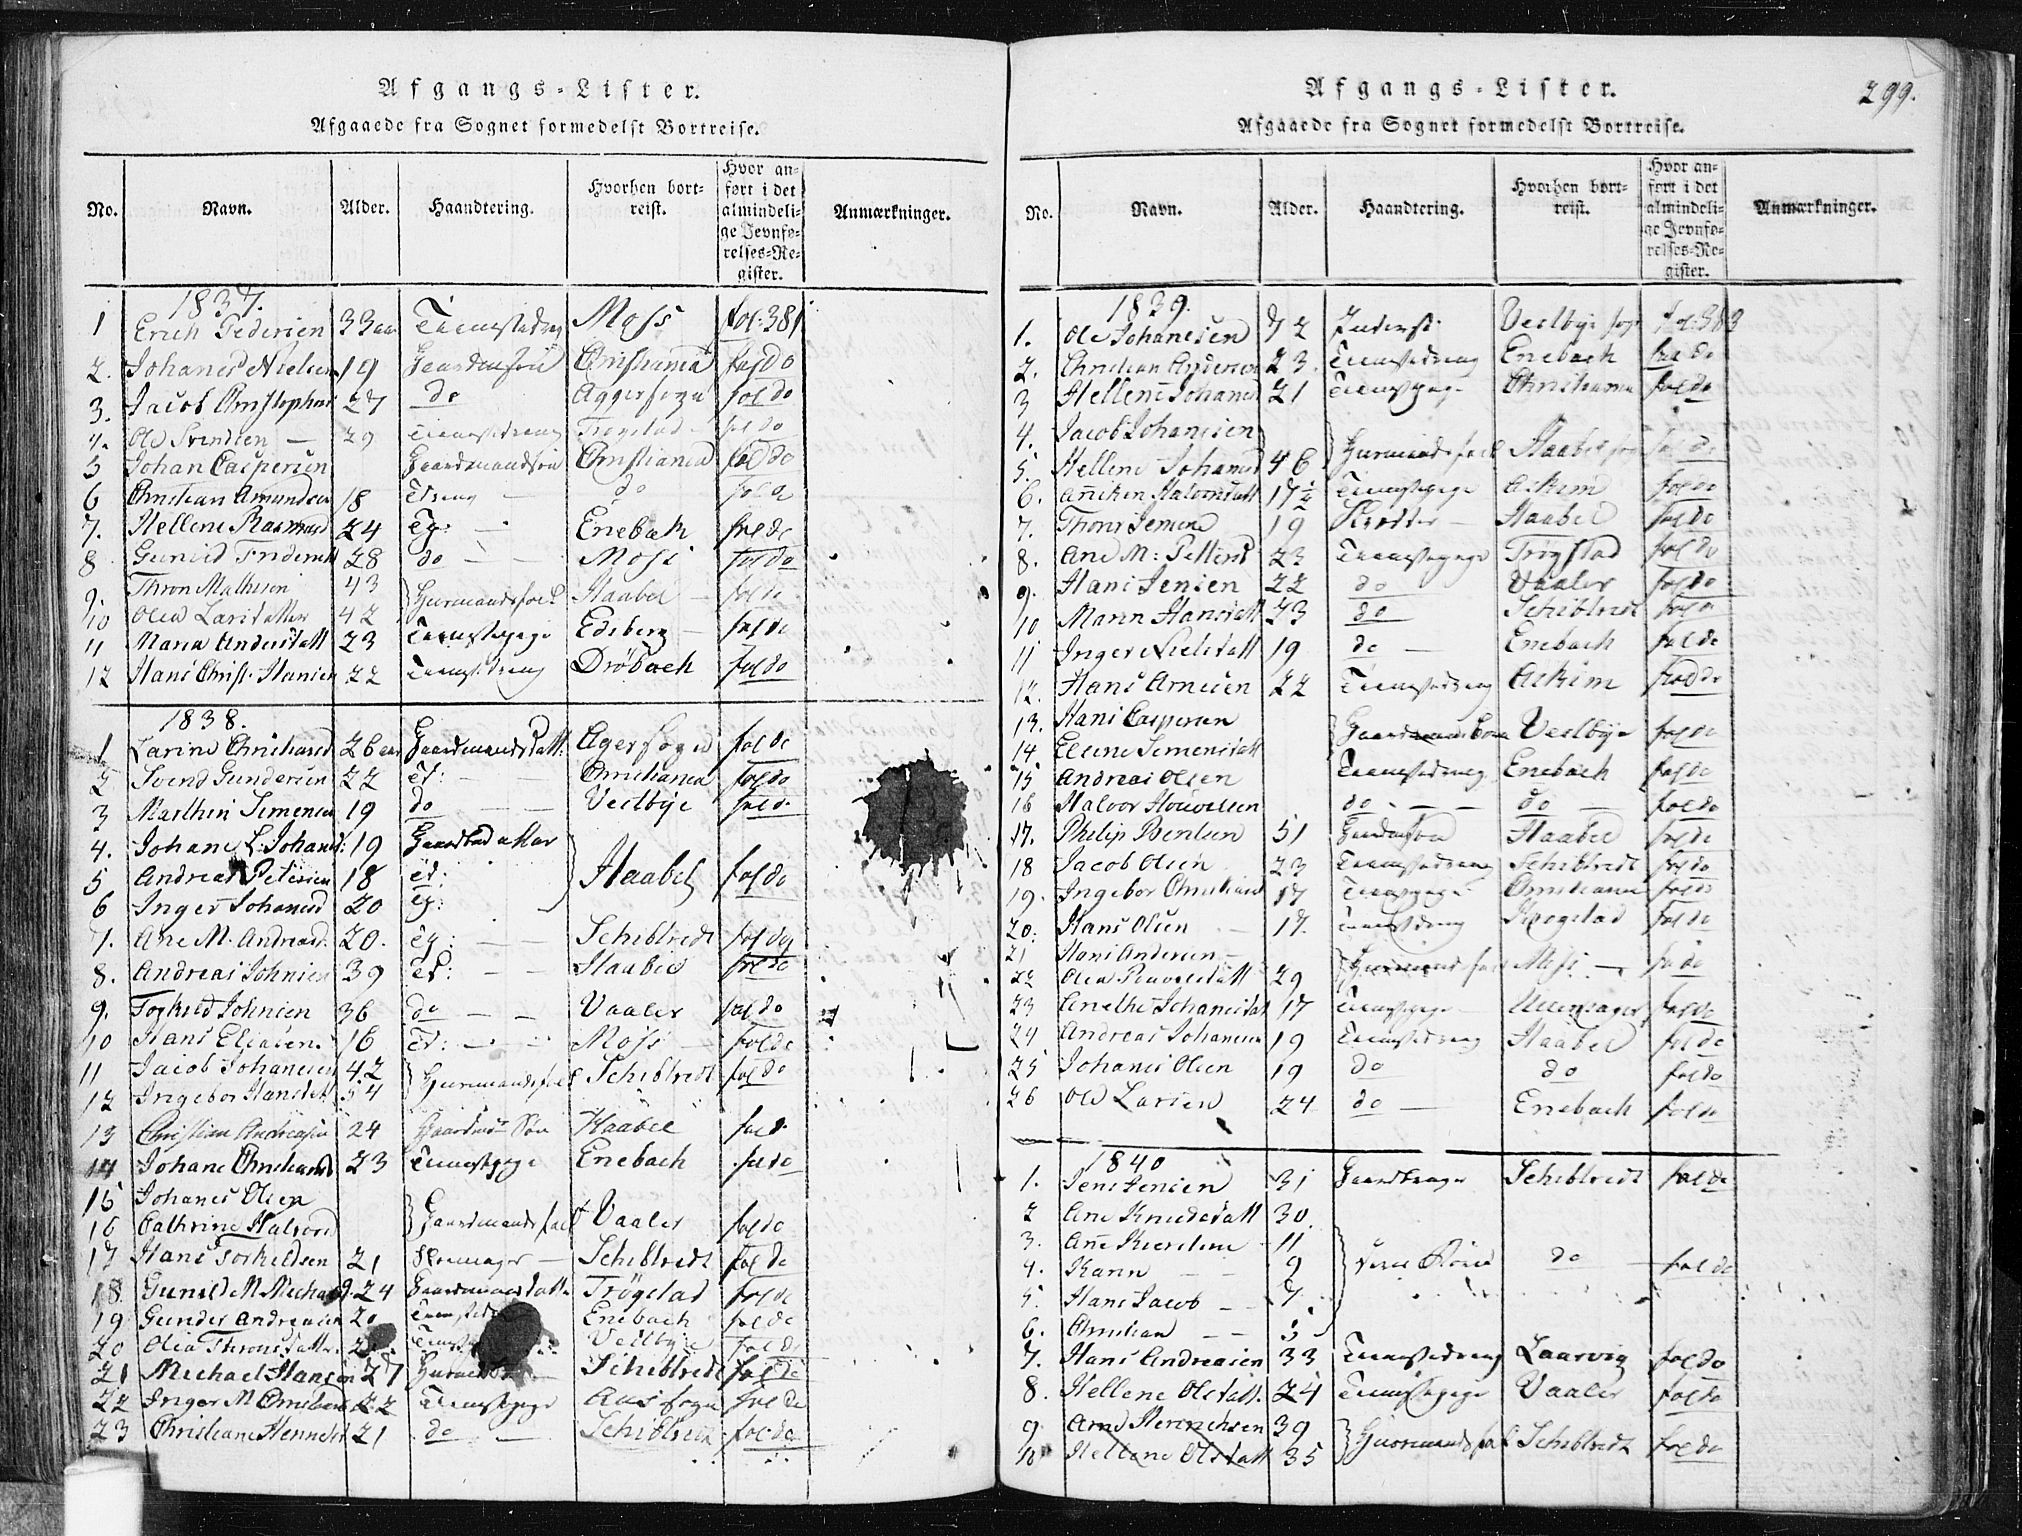 Afgangs-Lister.
Afgaaede fra Sognet formedelst Bortreise.
No. Navn. Alder. Haandtering. Hvorhen bortreist. Hvor anført i det almindelige Jevnførelses-Register. Anmærkninger.
1837.
1 Erich Pedersen 33 aar Tienestedreng Moss fol: 381
2. Johanes Nielsen 19 Gaardmsøn Christiania fol do
3. Jacob Christophers 27 do Aggersogn fol do
4. Ole Svendsen 29 Tienestedreng Trøgstad fol do
5 Johan Caspersen Gaardmandssøn Christiania fol do
6 Christian Amundsen 18 Tdreng do fol do
7. Hellene Rasmusd 24 Tg: Enebak fol do
8 Gunild 28 do Moss fol do
9. Thron Mathisen 43 Huusmandsfolk Haabel fol do
10 Olea Larsdatter 42
11 Maria Andersdatt 23 Tienestepige Edsberg fol do
12 Hans Christ. Hansen 22 Tienestdreng Drøbach fol do
1838.
1 Larine Christiansd 26 aar Gaardmandsdatt: Agersogn fol do
2 Svend Gundersen 22 Td: Christiania fol do
3 Marthin Simensen 19 do Vestbye fol do
4. Johane L. Johansd: 19 Gaardmdatter Haabel fol do
5 Andreas Petersen 18 Td:
6 Inger Johansd 20 Tg:
7. Ane M. Andreasd. 20. Tg: Schibtvedt fol do
8. Andreas Johnsen 39 Td: Haabel fol do
9. Torkild Johnsen 36 do Vaaler fol do
10 Hans Eliasen 16 Td: Moss fol do
11 Jacob Johanesen 42 Huusmandsfolk Schibtvedt fol do
12 Ingebor Hansdatt 54
13 Christian Andreasen 24 Gaardm: Søn Haabel fol do
14 Johane Christiansd 23 Tienestepige Enebach fol do
15 Johanes Olsen Gaardmandsfolk Vaaler fol do
16 Cathrine Halvorsd
17 Hans Torkildsen 21 Skomager Schibtvedt fol do
18 Gunild M. Michaelsd. 24 Gaardmandsdatt. Trøgstad fol do
19 Gunder Andreasen 20 Enebach fol do
20 Olea Thronsdatter Vestbye fol do
21 Michael Hansen 27 Schibtvedt fol do
22 Inger M. Christians 22 Tienestepige Aassogn fol do
23 Christiane Hennesd 21 do Schibtvedt fol do
Afgangs-Lister. 299.
Afgaaede fra Sognet formedelst Bortreise.
No. Navn. Alder. Haandtering. Hvorhen bortreist. Hvor anført i det almindelige Jevnførelses-Register. Anmærkninger.
1839.
1. Ole Johanesen 72 Inderst Vestbye sogn fol: 383
2. Christian Andersen 23. Tienestedreng Enebach fol do
3 Hellene Johanesd 21 Tienestepige Christiania fol do
4. Jacob Johanesen Huusmandsfolk Haabel sogn fol do
5. Hellene Johansd 46
6. Anniken Halvorsdatt 17½ Tienestepige Askim fol do
7. Thore Simens 19 Skrædder Haabel fol do
8. Ane M: Pettersd 23 Tienestepige Trøgstad fol do
9. Hans Jensen 22 do Vaaler fol do
10 Maren Hansdatt 23 do Schibtvedt fol do
11 Inger Nielsdatt 19 do Enebach fol do
12. Hans Arnesen 22 Tienestedreng Askim fol do
13. Hans Caspersen Vestbye fol do
14 Elene Simensdatt
15 Andreas Olsen Tienestedreng Enebach fol do
16 Halvor Houvelsen do do fol do
17. Philip Bentsen 51 Haabel fol do
18 Jacob Olsen 23 Tienestedreng Schibtvedt fol do
19. Ingebor Christiansd 17 Tienestepige Christiania fol do
20. Hans Olsen 17. Tienestdreng Krogstad fol do
21 Hans Andersen Huusmandsfolk Moss fol do
22 Olea Pauvelsdatt 29
23 Anethe Johansdat 17 Tienestepige Ullensager fol do
24 Andreas Johanesen 19 Tienestedreng Haabel fol do
25 Johanes Olsen 19 do do fol do
26 Ole Larsen 24 do Enebach fol do
1840
1. Jens Jensen 31 Gaardbruger Schibtvedt fol do
2 Ane Knudsdatt 30.
3. Ane Kierstine 11 Børn do fol do
4. Karen 9
5. Hans Jacob 7.
6. Christian 5
7. Hans Andreasen 33 Tienestedreng Laurvig fol do
8. Hellene Olsdatt. 24 Tienestepige Vaaler fol do
9. Arnd Henrichsen 39 Huusmandsfolk Schibtvedt fol do
10 Hellene Olsdatt 35